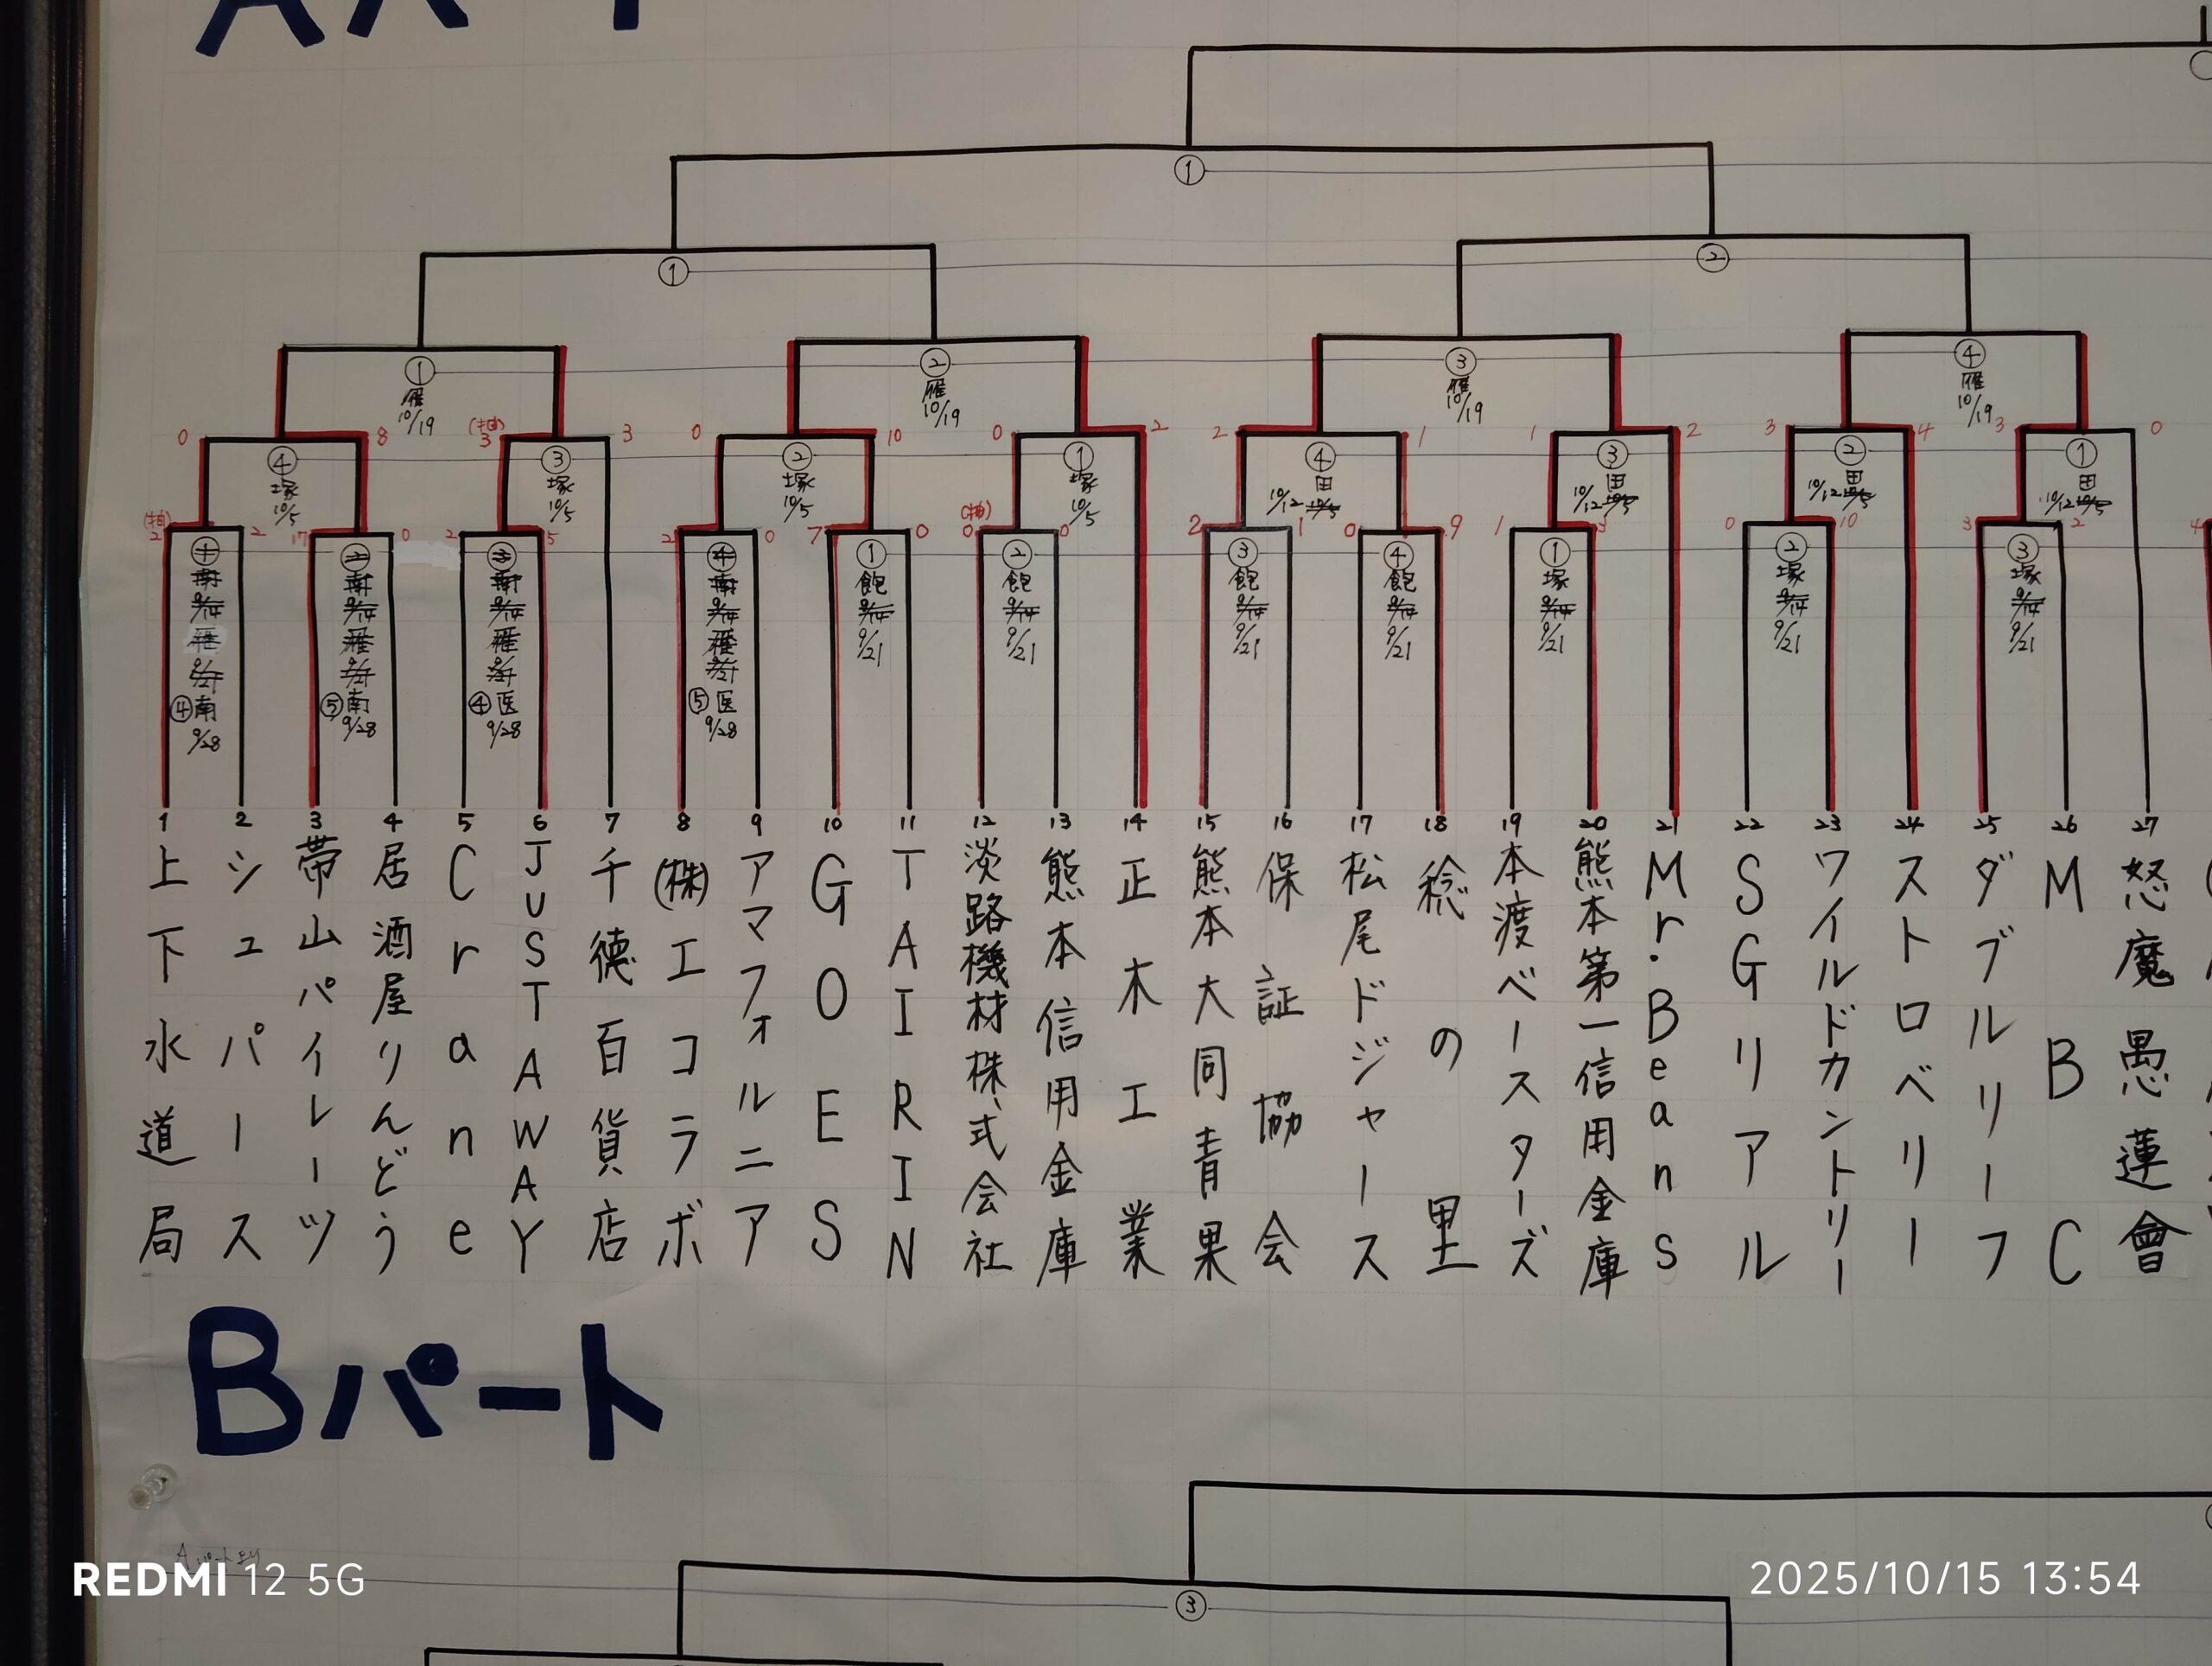 ①
①
②
①
雁
10/19
②
雁
10/19
③
雁
10/19
④
雁
10/19
0
8
(抽)
3
3
0
10
0
2
2
1
1
2
3
4
3
0
④
塚
10/5
③
塚
10/5
②
塚
10/5
①
塚
10/5
④
田
10/12 10/5
③
田
10/12 10/5
②
田
10/12 10/5
①
田
10/12 10/5
(抽)
2
2
17
0
2
5
2
0
7
0
(抽)
0
0
2
1
0
9
1
3
0
10
3
2
4
①
南
9/14
雁
9/21
④南
9/28
②
南
9/14
雁
9/21
⑤南
9/28
③
南
9/14
雁
9/21
④医
9/28
④
南
9/14
雁
9/21
⑤医
9/28
①
飽
9/14
9/21
②
飽
9/14
9/21
③
飽
9/14
9/21
④
飽
9/14
9/21
①
塚
9/14
9/21
②
塚
9/14
9/21
③
塚
9/14
9/21
1 上下水道局
2 シュパース
3 帯山パイレーツ
4 居酒屋りんどう
5 Crane
6 JUSTAWAY
7 千徳百貨店
8 (株)エコラボ
9 アマフォルニア
10 GOES
11 TAIRIN
12 淡路機材株式会社
13 熊本信用金庫
14 正木工業
15 熊本大同青果
16 保証協会
17 松尾ドジャース
18 稔の里
19 本渡ベースターズ
20 熊本第一信用金庫
21 Mr.Beans
22 SGリアル
23 ワイルドカントリー
24 ストロベリー
25 ダブルリーフ
26 MBC
27 怒魔愚蓮會
Bパート
③
REDMI 12 5G
2025/10/15 13:54